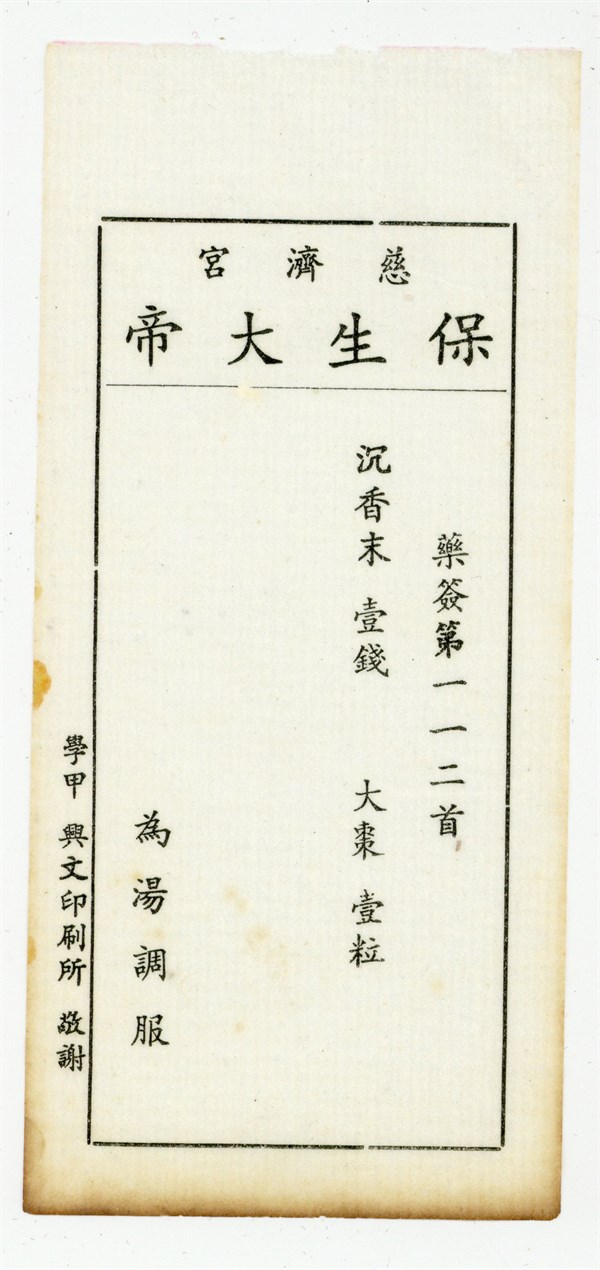 慈濟宮
保生大帝
藥簽第一一二首
沉香末 壹錢 大棗 壹粒
為湯調服
學甲 興文印刷所 敬謝